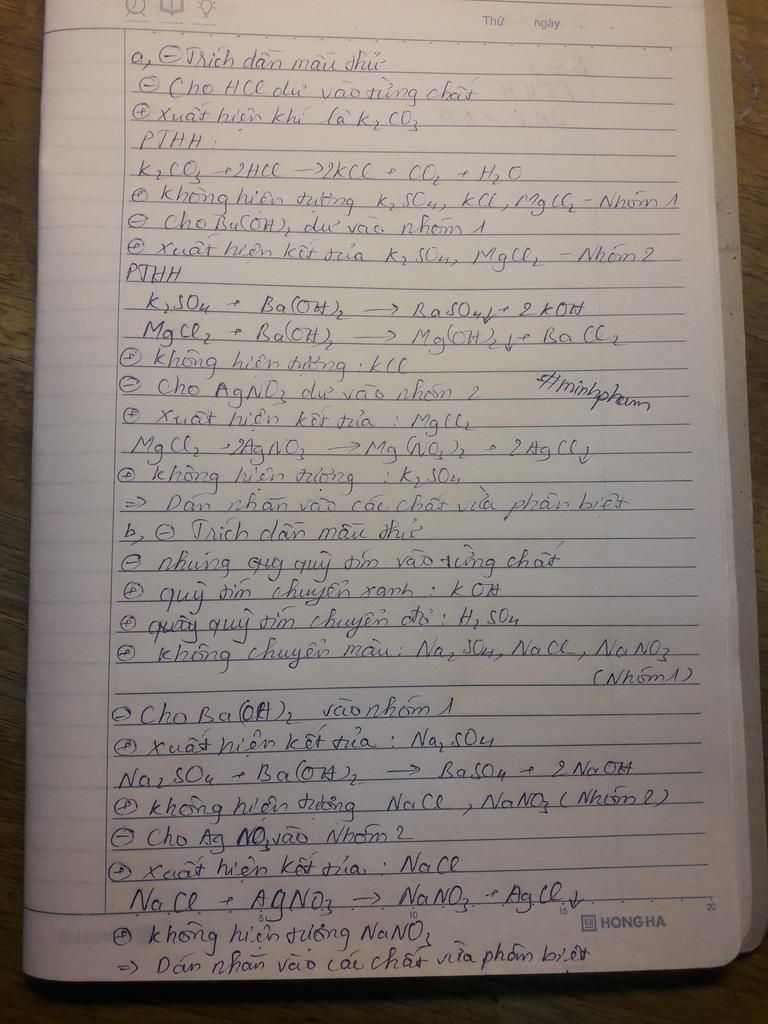 Thứ ngày
a, ⊖ Trích dẫn mẫu thử
⊖ Cho HCl dư vào từng chất
⊕ xuất hiện khí là K₂CO₃
PTHH:
K₂CO₃ + 2HCl → 2KCl + CO₂ + H₂O
⊕ không hiện tượng K₂SO₄, KCl, MgCl₂ - Nhóm 1
⊖ Cho Ba(OH)₂ dư vào nhóm 1
⊕ xuất hiện kết tủa K₂SO₄, MgCl₂ - Nhóm 2
PTHH
K₂SO₄ + Ba(OH)₂ → BaSO₄↓ + 2KOH
MgCl₂ + Ba(OH)₂ → Mg(OH)₂↓ + BaCl₂
⊕ không hiện tượng : KCl
⊖ Cho AgNO₃ dư vào nhóm 2 #minhpham
⊕ xuất hiện kết tủa : MgCl₂
MgCl₂ + 2AgNO₃ → Mg(NO₃)₂ + 2AgCl↓
⊕ không hiện tượng : K₂SO₄
⇒ Dán nhãn vào các chất vừa phân biệt
b, ⊖ Trích dẫn mẫu thử
⊖ nhúng quỳ tím vào từng chất
⊕ quỳ tím chuyển xanh : KOH
⊕ quỳ tím chuyển đỏ : H₂SO₄
⊕ không chuyển màu : Na₂SO₄, NaCl, NaNO₃
(Nhóm 1)
⊖ Cho Ba(OH)₂ vào nhóm 1
⊕ xuất hiện kết tủa : Na₂SO₄
Na₂SO₄ + Ba(OH)₂ → BaSO₄ + 2NaOH
⊕ không hiện tượng NaCl, NaNO₃ (Nhóm 2)
⊖ Cho AgNO₃ vào Nhóm 2
⊕ xuất hiện kết tủa : NaCl
NaCl + AgNO₃ → NaNO₃ + AgCl↓
5 10 15 20
HONG HA
⊕ không hiện tượng NaNO₃
⇒ Dán nhãn vào các chất vừa phân biệt